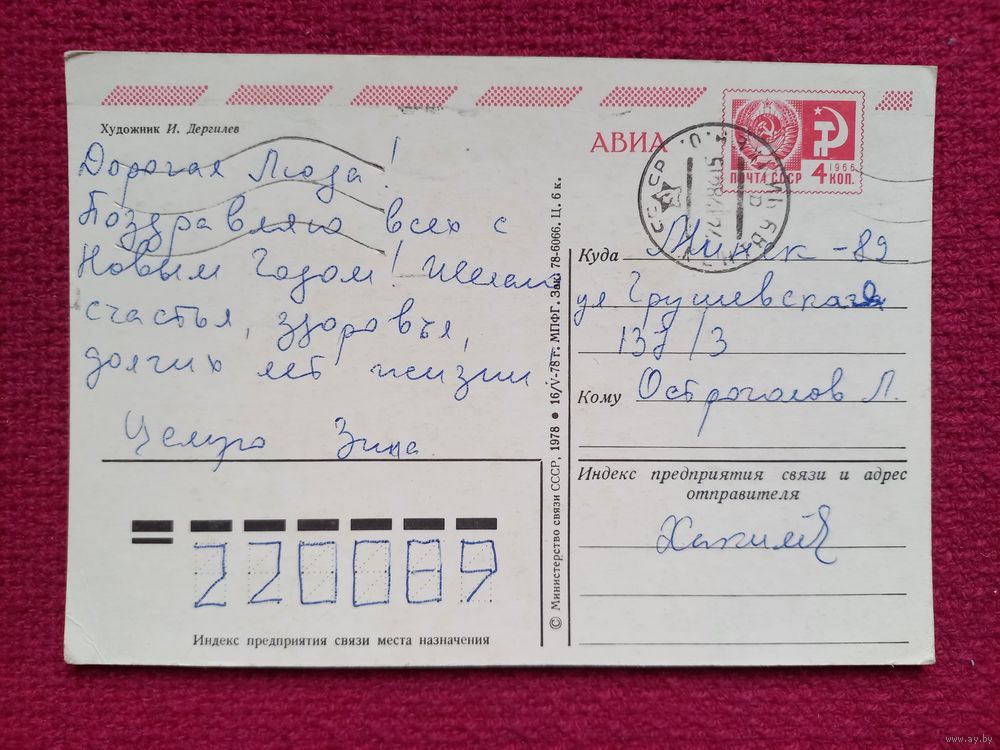 Художник И. Дергилев
АВИА
1966
ПОЧТА СССР 4 КОП.
СССР
Дорогая Люда!
Поздравляю всех с
Новым Годом! Желаю
счастья, здоровья,
долгих лет жизни
Целую Зина
Индекс предприятия связи места назначения
220089
© Министерство связи СССР, 1978 ● 16/V-78 г. МПФГ. Зак. 78-6066. Ц. 6 к.
Куда Минск-89
ул Грушевская
137/3
Кому Острогалов Л.
Индекс предприятия связи и адрес
отправителя
www.ay.by